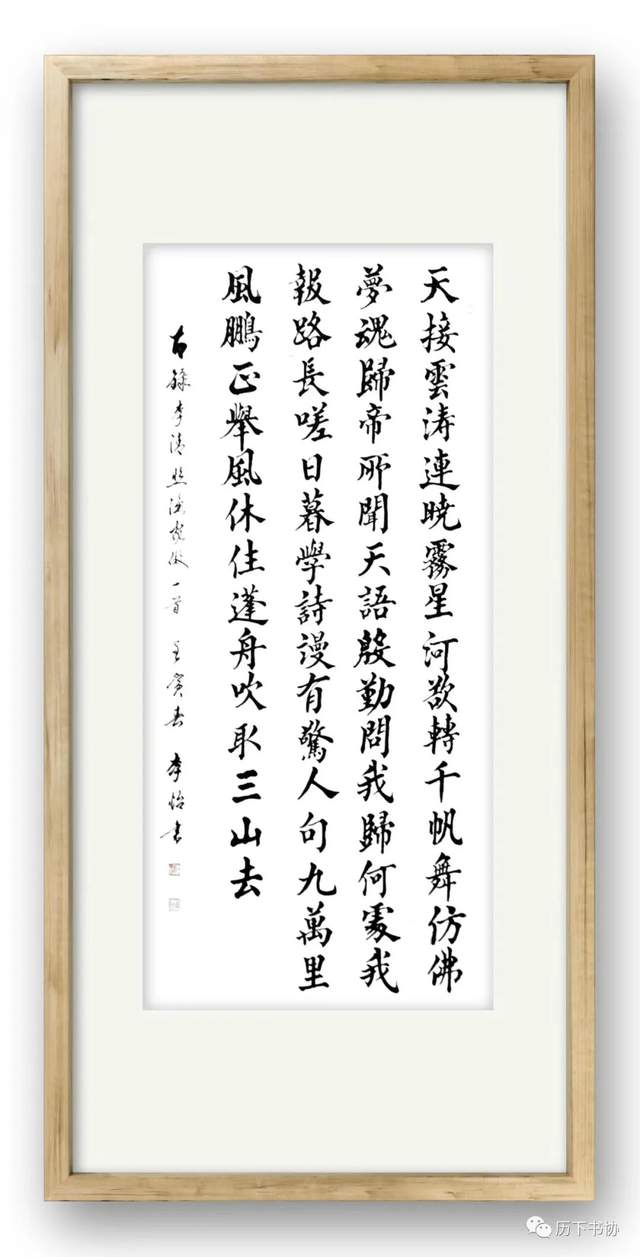 天接雲涛連暁霧星河欲轉千帆舞仿佛
夢魂歸帝所聞天語殷勤問我歸何處我
報路長嗟日暮學詩謾有驚人句九萬里
風鵬正舉風休住蓬舟吹取三山去
右録李清照漁家傲一首 壬寅春 李怡書
历下书协